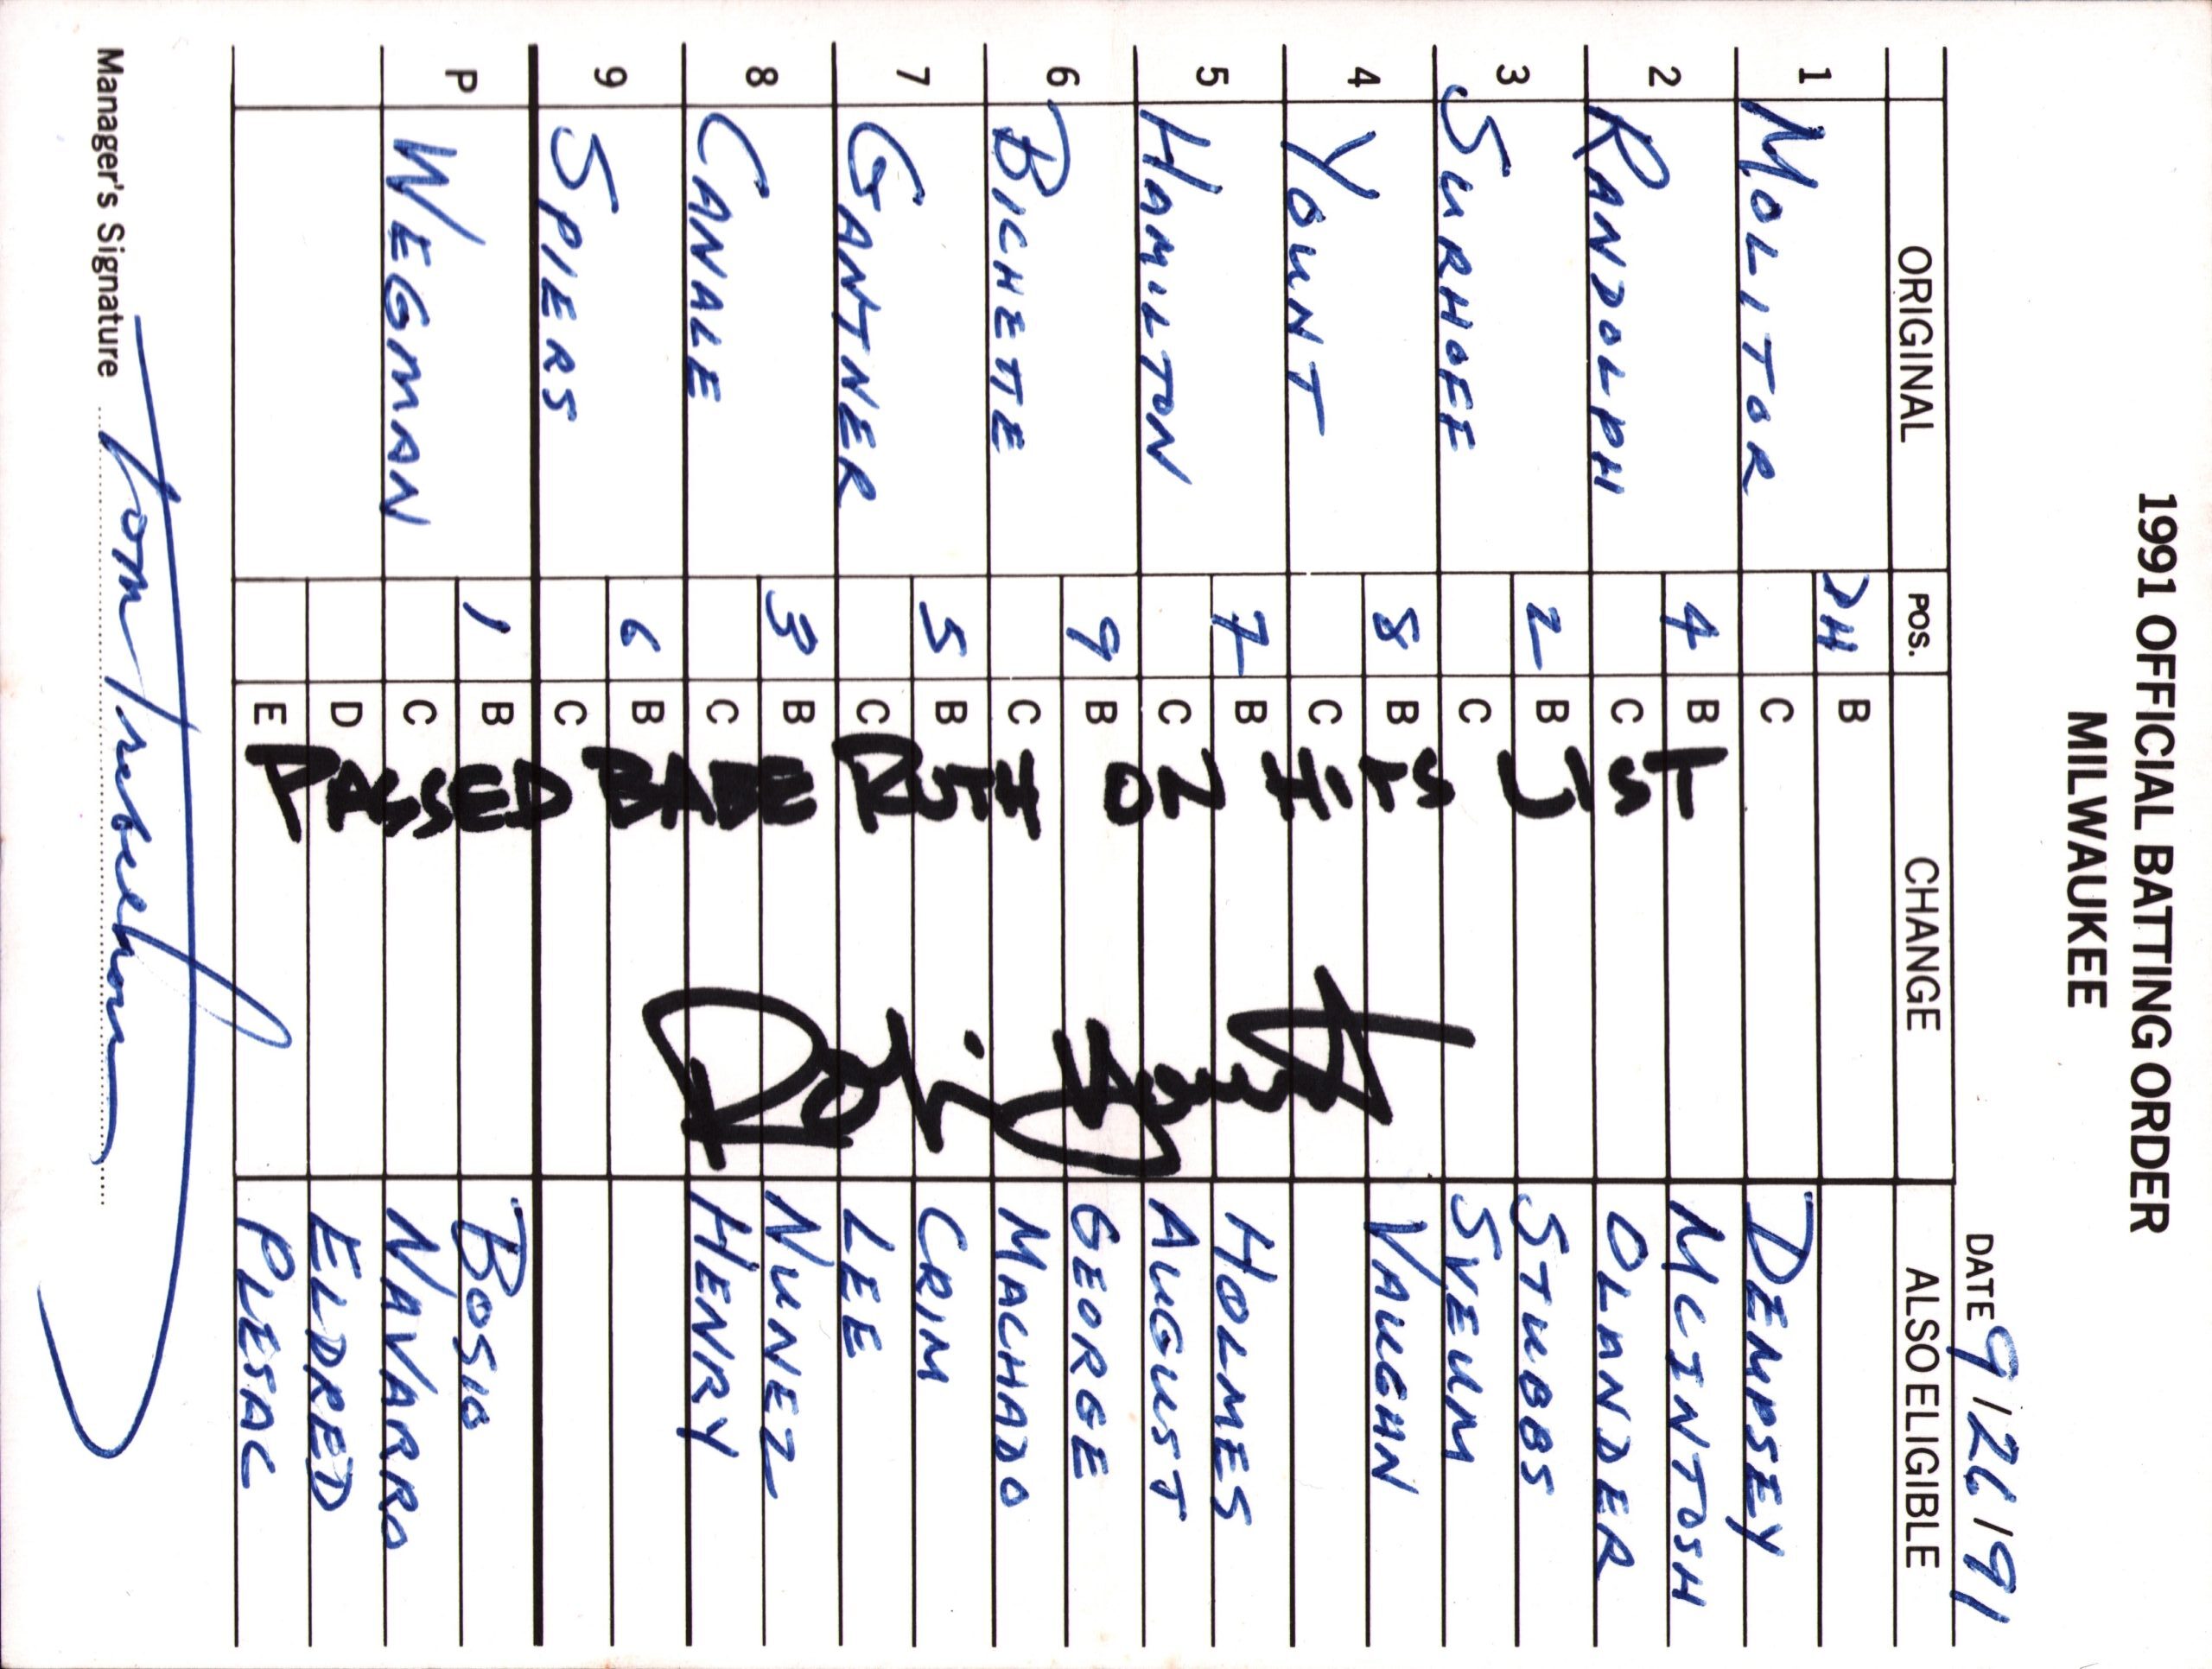 1991 OFFICIAL BATTING ORDER
MILWAUKEE
DATE 9/26/91
ORIGINAL POS. CHANGE ALSO ELIGIBLE
1 MOLITOR DH B
C DEMPSEY
2 RANDOLPH 4 B MCINTOSH
C OLANDER
3 SURHOFF 2 B STUBBS
C SVEUM
4 YOUNT 8 B VAUGHN
C
5 HAMILTON 7 B HOLMES
C AUGUST
6 BICHETTE 9 B GEORGE
C MACHADO
7 GANTNER 5 B CRIM
C LEE
8 CANALE 3 B NUNEZ
C HENRY
9 SPIERS 6 B
C
P WEGMAN 1 B BOSIO
C NAVARRO
D ELDRED
E PLESAC
PASSED BABE RUTH ON HITS
Robin Yount
Manager's Signature Tom Trebelhorn